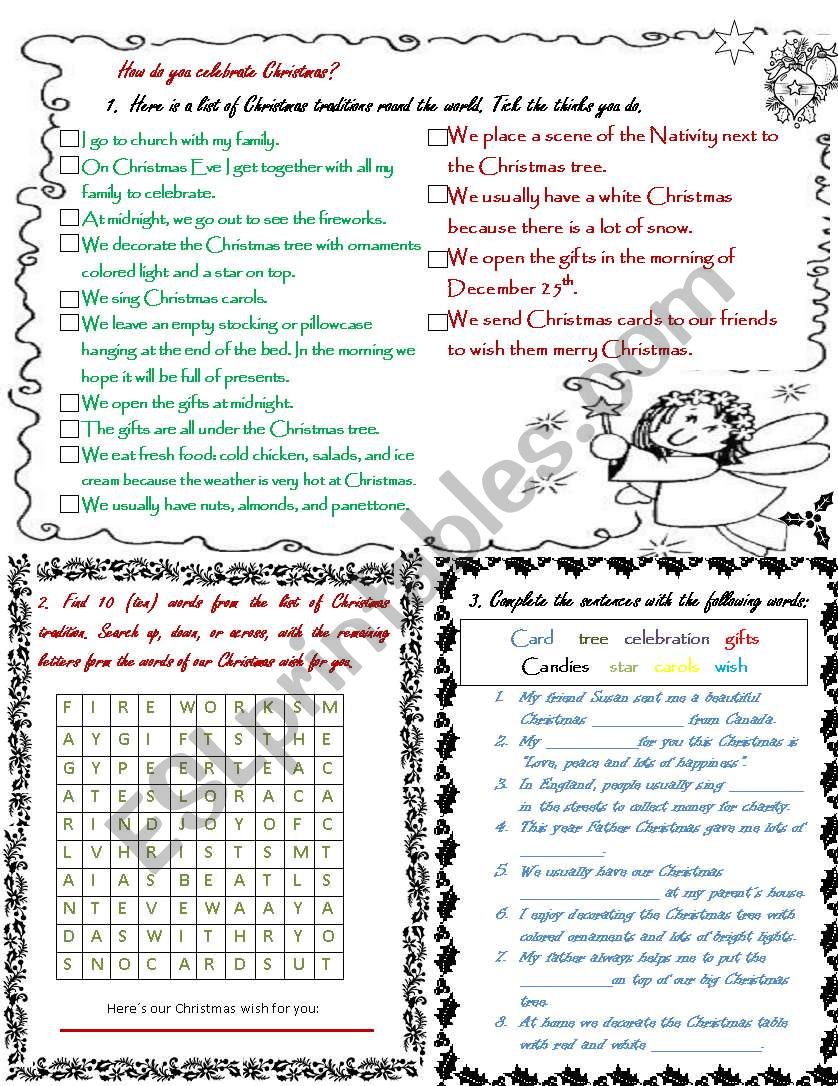 How do you celebrate Christmas?
1. Here is a list of Christmas traditions round the world. Tick the thinks you do.
I go to church with my family.
On Christmas Eve I get together with all my
family to celebrate.
At midnight, we go out to see the fireworks.
We decorate the Christmas tree with ornaments
colored light and a star on top.
We sing Christmas carols.
We leave an empty stocking or pillowcase
hanging at the end of the bed. In the morning we
hope it will be full of presents.
We open the gifts at midnight.
The gifts are all under the Christmas tree.
We eat fresh food: cold chicken, salads, and ice
cream because the weather is very hot at Christmas.
We usually have nuts, almonds, and panettone.
We place a scene of the Nativity next to
the Christmas tree.
We usually have a white Christmas
because there is a lot of snow.
We open the gifts in the morning of
December 25th.
We send Christmas cards to our friends
to wish them merry Christmas.
2. Find 10 (ten) words from the list of Christmas
tradition. Search up, down, or across, with the remaining
letters form the words of our Christmas wish for you.
F I R E W O R K S M
A Y G I F T S T H E
G Y P E E R L E A C
A T E S L O R A C A
R I N D I O Y O F C
L V H R I S T S M T
A I A S B E A T L S
N T E V E W A A Y A
D A S W I T H R Y O
S N O C A R D S U T
Here´s our Christmas wish for you:
3. Complete the sentences with the following words:
Card tree celebration gifts
Candies star carols wish
1. My friend Susan sent me a beautiful
Christmas ____________ from Canada.
2. My ____________ for you this Christmas is
"Love, peace and lots of happiness".
3. In England, people usually sing __________
in the streets to collect money for charity.
4. This year Father Christmas gave me lots of
___________.
5. We usually have our Christmas
__________________ at my parent´s house.
6. I enjoy decorating the Christmas tree with
colored ornaments and lots of bright lights.
7. My father always helps me to put the
____________on top of our big Christmas
tree.
8. At home we decorate the Christmas table
with red and white ______________.
ESLprintables.com